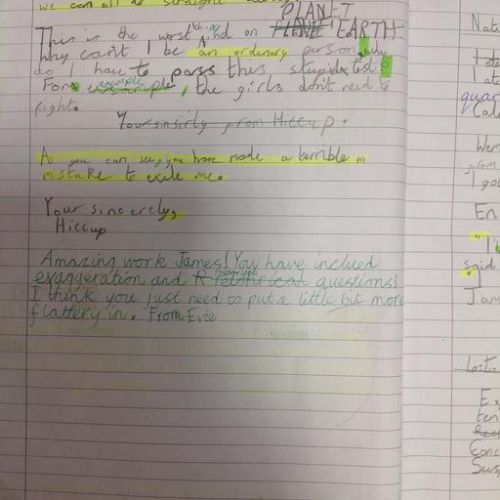 we can all
straight
PLANET
thing
This is the worst kind on PLANE EARTH
Why can't I be an ordinary person, why
do I have to pass this stupid test?
example
For example, the girls don't need to
fight.
Your sinsirly, from Hiccup.
As you can see, you have made a terrible m
mistake to exile me.
Your sincerely,
Hiccup
Amazing work James! You have inclued
exaggeration and R retorical questions!
I think you just need to put a little bit more
flattery in. From Evie
quar
from
I go
En
said
Jam
Ex
Conc
Sus